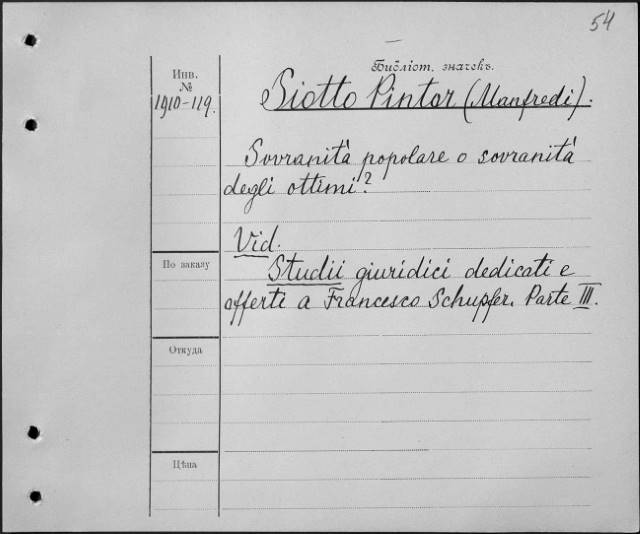 54
Библіот. значекъ.
Инв.
№
1910-119.
Siotto Pintor (Manfredi).
Sovranità popolare o sovranità
degli ottimi?
Vid.
Studii giuridici dedicati e
offerti a Francesco Schupfer. Parte III.
По заказу
Откуда
Цѣна